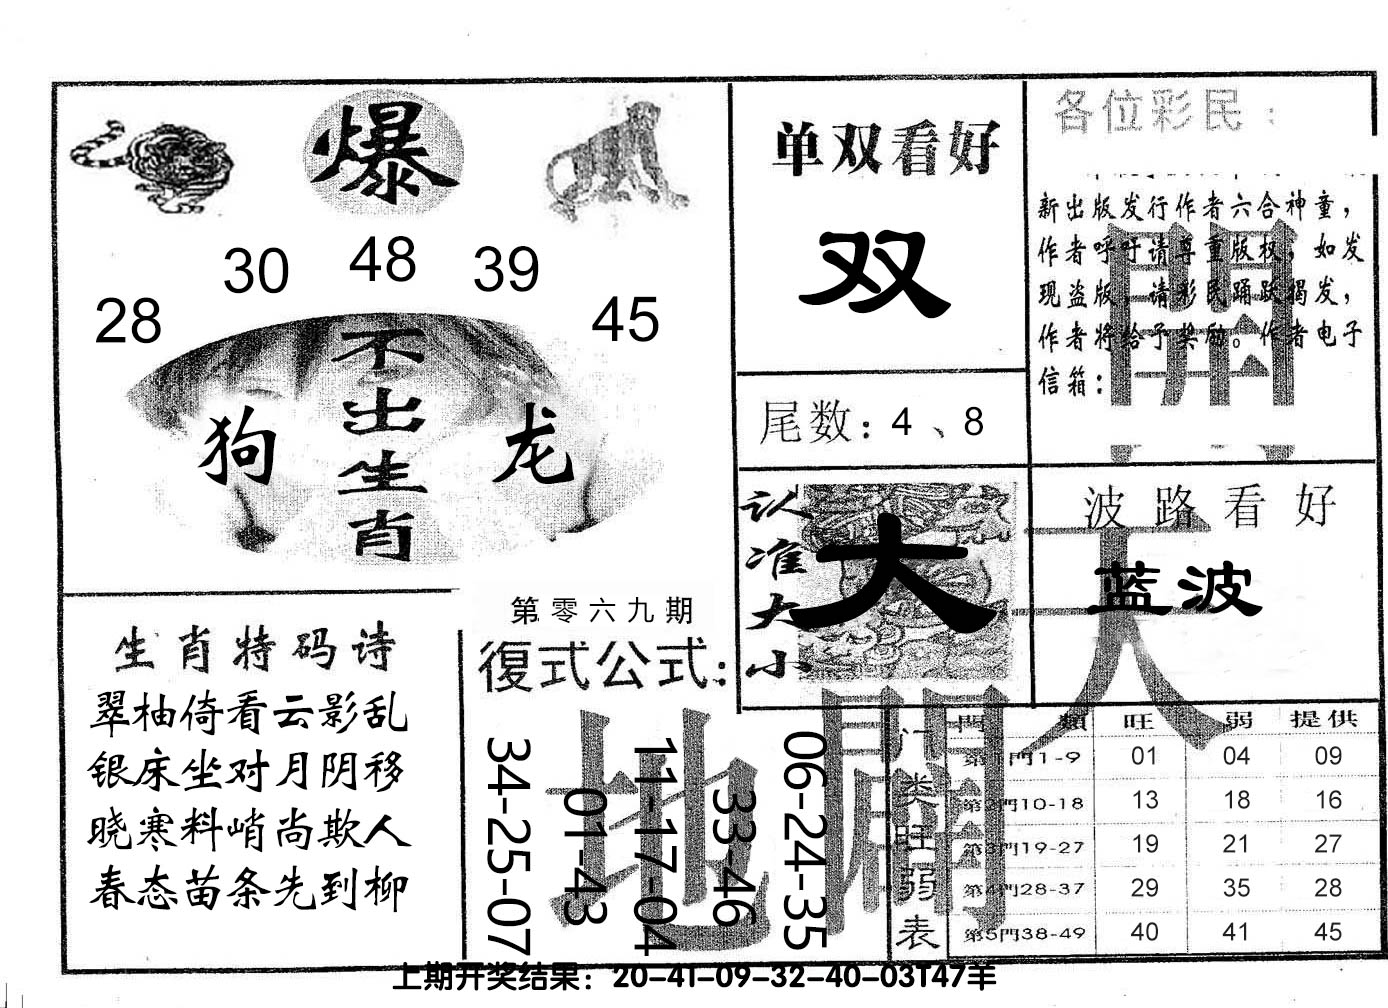 爆
28 30 48 39 45
不出生肖
狗 龙
单双看好
双
尾数：4、8
各位彩民：
新出版发行作者六合神童，
作者呼吁请尊重版权，如发
现盗版，请彩民踊跃揭发，
作者将给予奖励。作者电子
信箱：
認准大小
大
波路看好
蓝波
天
開
地
閘
生肖特码诗
翠柚倚看云影乱
银床坐对月阴移
晓寒料峭尚欺人
春态苗条先到柳
第零六九期
復式公式：
34-25-07
01-43
11-17-04
33-46
06-24-35
门类旺弱表
門類 旺 弱 提供
第1門1-9 01 04 09
第2門10-18 13 18 16
第3門19-27 19 21 27
第4門28-37 29 35 28
第5門38-49 40 41 45
上期开奖结果：20-41-09-32-40-03T47羊